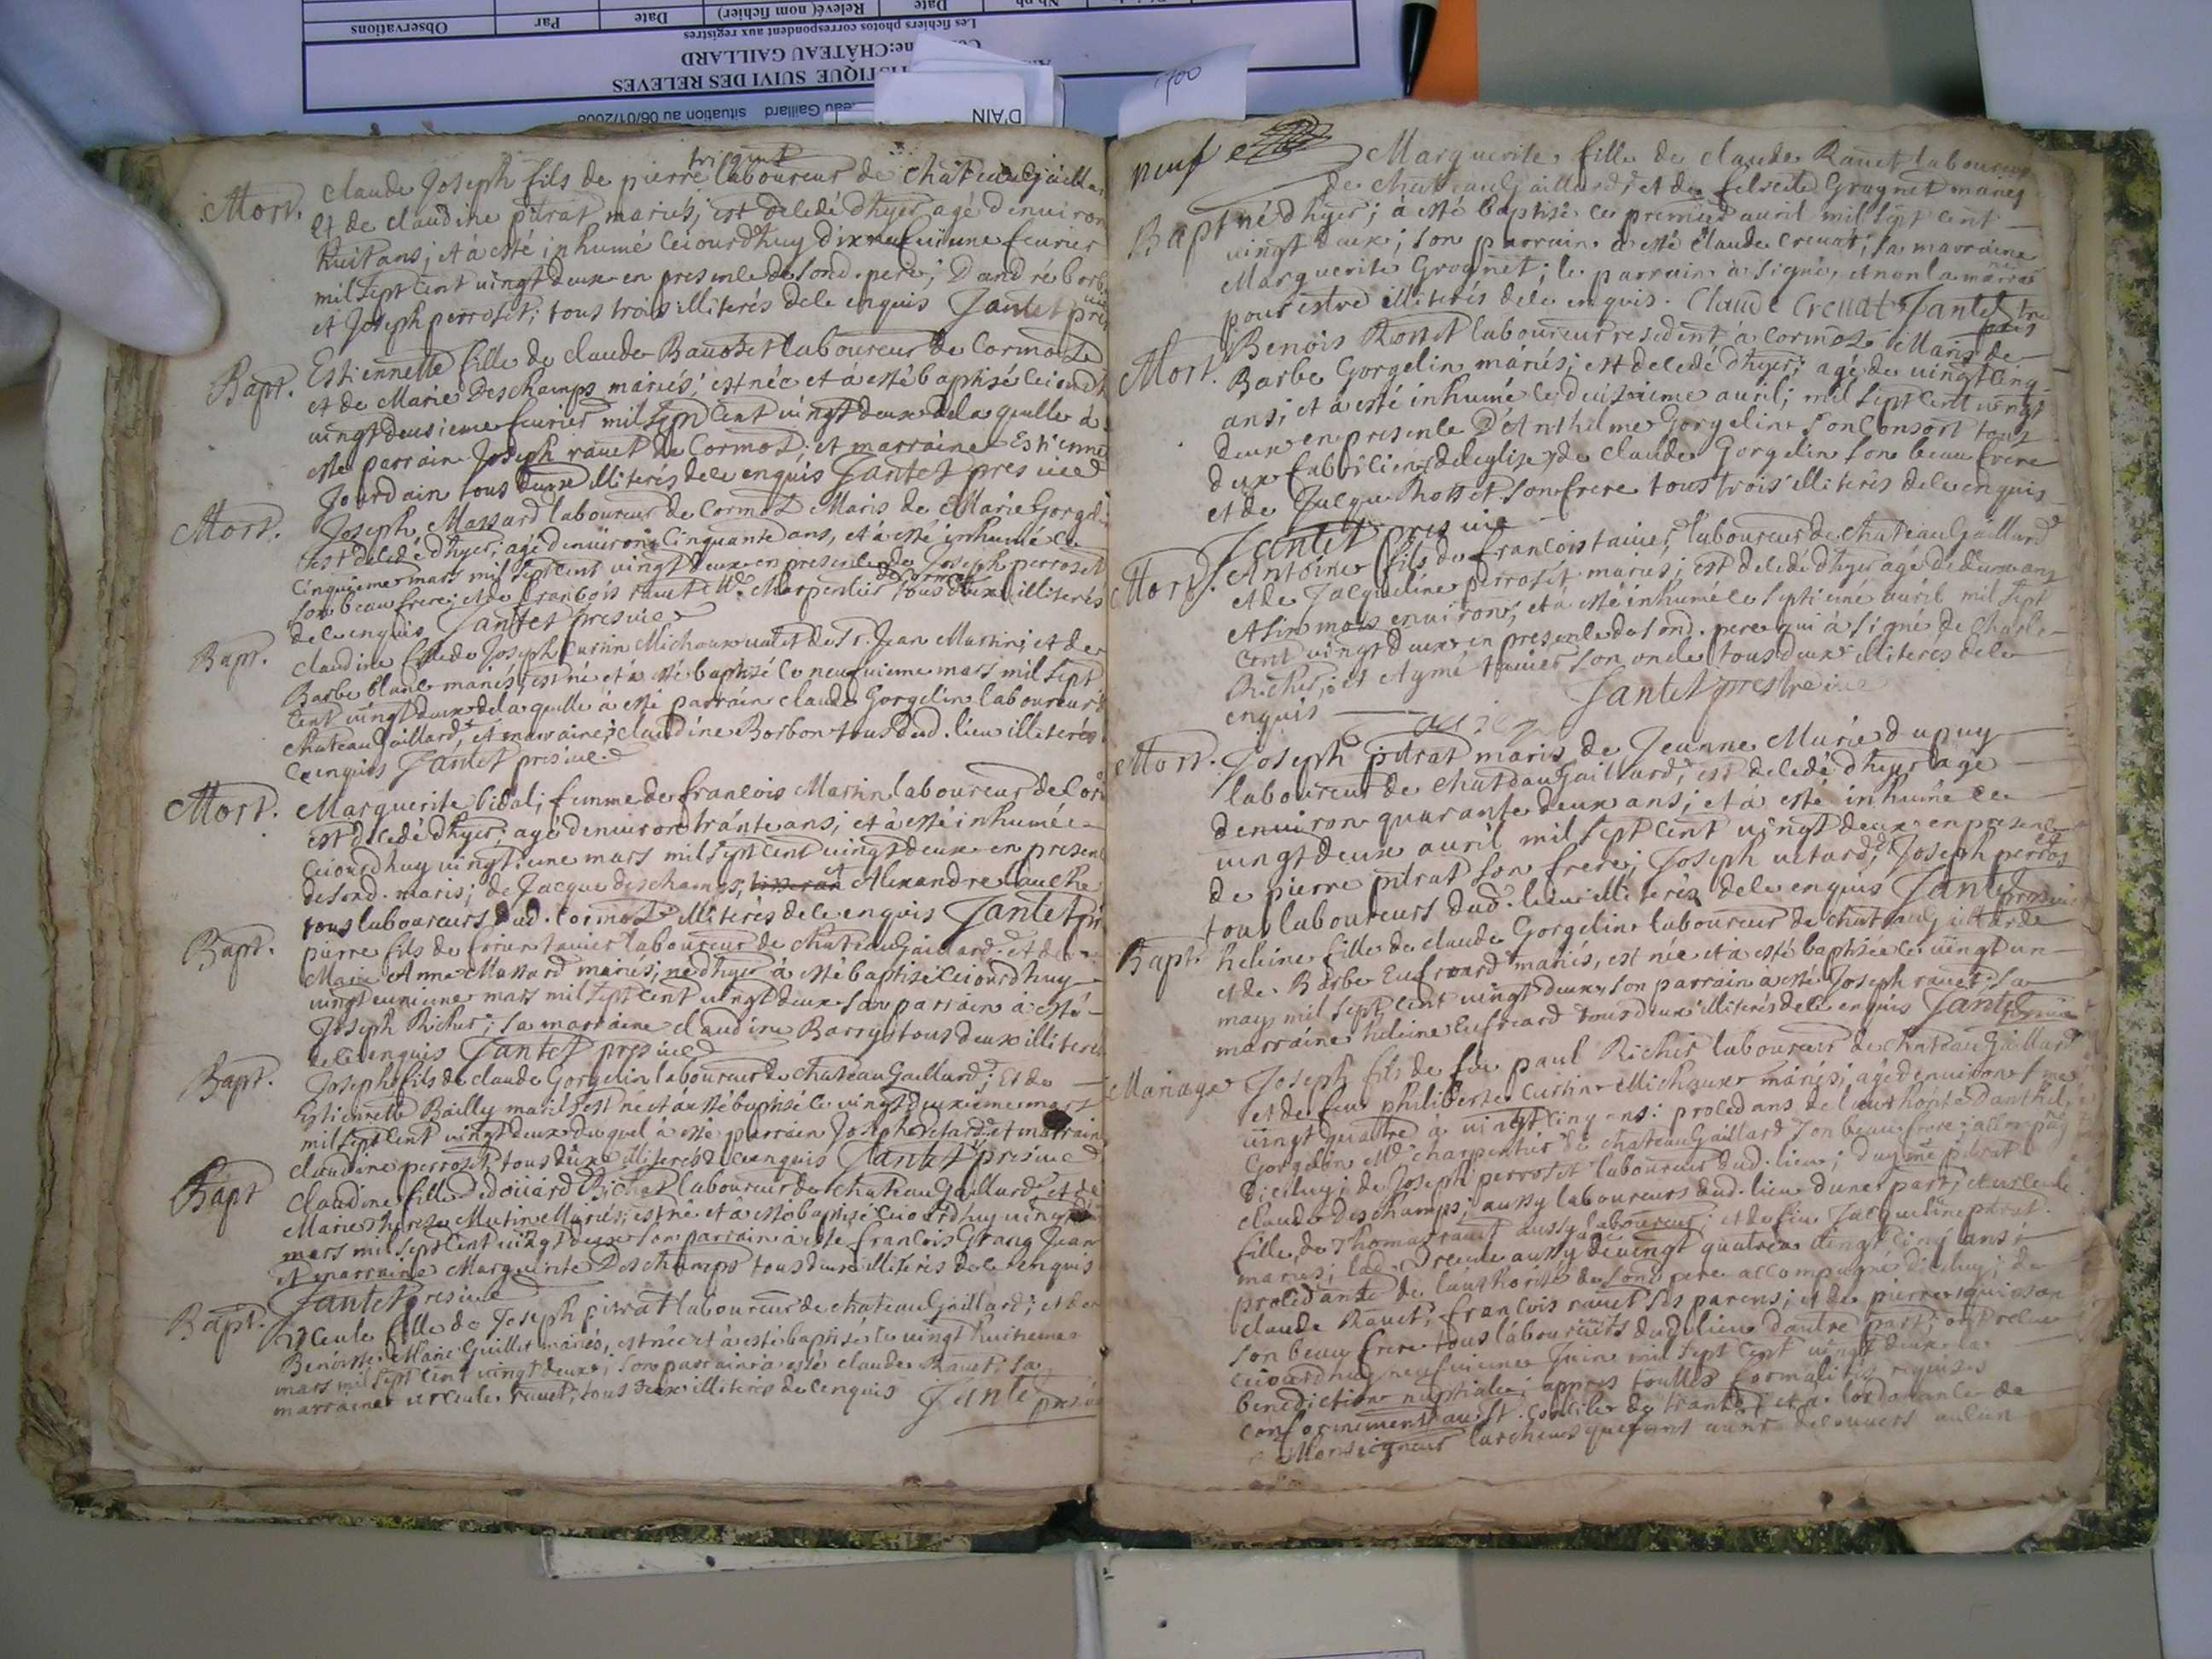 Observations
Par
Date
Relevé( nom fichier)
Date
Nb ph
Les fichiers photos correspondent aux registres
ne:CHÂTEAU GAILLARD
ISTIQUE SUIVI DES RELEVES
eau Gaillard situation au 06/01/200
D'AIN
700
trigunt
Mort. Claude Joseph fils de pierre laboureur de chateauGailla
et de claudine pitrat mariés; est decedé dhyer, agé denuiron
huit ans; et à esté inhumé ceiourdhuy dixneufuieme feurier
mil sept cent uingt deux en presence de sond. pere; Dandré borb
et Joseph perroset; tous trois illiterés de ce enquis Jantet pre
Bapt. Estiennette fille de claude Bauoset laboureur de Cormoz
et de Marie Deschamps mariés; est née et à esté baptisé ceiourd
uingt deusieme feurier mil sept cent uingt deux de laquelle à
esté parrain Joseph rauet de Cormoz; et marraine Estienne
Jourdain tous deux illiterés de ce enquis Jantet pres uice
Mort. Joseph Massard laboureur de Cormoz Maris de Marie Gorgel
est decedé dhyer; agé denuiron Cinquante ans, et à esté inhumé ce
cinquieme mars mil sept cent uingt deux en presence de Joseph perroset
son beau frere; et de francois rauet Me. charpentier de Cormoz tous deux illiterés
de ce enquis Jantet pres uice
Bapt. claudine fille de Joseph Curtin Michaux ualet de Sr. Jean Martin; et de
Barbe blanc mariés; est né et à esté baptisé ce neufuieme mars mil sept
cent uingt deux de laquelle à esté parrain claude Gorgelin laboureur d
chateauGaillard; et marraine; claudine Borbon tous dud. lieu illiterés
ce enquis Jantet pres uice
Mort. Marguerite Vidal; femme de francois Martin laboureur de Cor
est decedé dhyer; agé denuiron trante ans; et à esté inhumée
ceiourdhuy uingtieme mars mil sept cent uingt deux en presenc
de sond. maris; de Jacque deschamps; et Alexandre
tous laboureurs dud. Cormoz illiterés de ce enquis Jantet pr
Bapt. pierre fils de tauier laboureur de chateauGaillard. et de
Marie Anne Massard mariés; né dhyer à esté baptisé ceiourdhuy
uingt eunieme mars mil sept cent uingt deux son parrain à esté
Joseph Richer; sa marraine claudine Barry tous deux illiteres
de ce enquis Jantet pres uice
Bapt. Joseph fils de claude Gorgelin laboureur de chateauGaillard; et de
Estiennette Bailly mariés est né et à esté baptisé ce uingt deuxieme mars
mil sept cent uingt deux duquel à esté parrain Joseph uetard; et marrain
claudine perroset tous deux illiterés de ce enquis Jantet pres uice
Bapt claudine fille dedoüard Richer laboureur de chateauGaillard; et de
Marie therese Mutin Mariés; est né et à esté baptisé ceiourdhuy uingt
mars mil sept cent uingt deux son parrain à esté francois Jean
et marraine Marguerite Deschamps tous deux illiterés de ce enquis
Jantet pres uice
Bapt. urceule fille de Joseph pitrat laboureur de chateauGaillard; et de
Benoiste Marie Guillet mariés, est née et à esté baptisé le uingt huitieme
mars mil sept cent uingt deux; son parrain à esté claude Rauet, sa
marraine urceule rauet; tous deux illiterés de ce enquis Jantet pres ui
neuf
Marguerite fille de claude Rauet laboureur
de chateauGaillard; et de felicité Grognet mariés
Bapt né dhyer; à esté baptisé ce premier auril mil sept cent
uingt deux; son parrain à esté claude creuat; sa marraine
Marguerite Grognet; le parrain à signé, et non la marrai
pour estre illiterés de ce enquis. Claude Creuat Jantet
Mort. Benois Rosset laboureur resident à cormoz Maris de
Barbe Gorgelin mariés; est decedé dhyer; agé de uingt cinq
ans; et à esté inhumé ce deusieme auril; mil sept cent uingt
deux en presence D'Anthelme Gorgelin son Consort tous
deux fabriciens de leglise, de claude Gorgelin son beau frere
et de Jacque Rosset son frere tous trois illiterés de ce enquis
Jantet pres uice
Mort. Antoine fils de francois tauier, laboureur de chateauGaillard
et de Jacqueline perroset mariés; est decedé dhyer agé de deux ans
et six mois enuiron; et à esté inhumé ce septieme auril mil sept
cent uingt deux en presence de sond. pere qui à signé de charle
Richer; et Aymé tauier son oncle tous deux illiterés de ce
enquis Jantet prestre uice
Mort. Joseph pitrat maris de Jeanne Marie dupuy
laboureur de chateauGaillard; est decedé dhyer agé
denuiron quarante deux ans; et à esté inhumé ce
uingt deux auril mil sept cent uingt deux en presence
de pierre pitrat son frere; Joseph uetard; et Joseph perros
tous laboureurs dud. lieu illiterés de ce enquis Jantet pres uice
Bapt. heleine fille de claude Gorgelin laboureur de chateauGaillard
et de Barbe Eufrard mariés, est née et à esté baptisée ce uingt un
may mil sept cent uingt deux, son parrain à esté Joseph rauet; sa
marraine heleine Eufrard tous deux illiterés de ce enquis Jantet
Mariage Joseph fils de feu paul Richer laboureur de chateauGaillard
et de feue philiberte Curtin Michaux mariés; agé denuiron
uingt quattre à uingt cinq ans: procedans de lauthorité danthel
Gorgelin Me charpentier de chateauGaillard son beau frere; accompag
diceluy; de Joseph perroset laboureur dud. lieu; daymé pitrat
claude deschamps; aussy laboureurs dud. lieu dune part; et urceule
fille de Thomas rauet aussy laboureur; et de feue Jacqueline pitrat
mariés; lad. urceule aussy de uingt quatre à uingt cinq ans
procedante de lauthorité de sond. pere accompagné diceluy; de
claude Rauet; francois rauet ses parens; et de pierre
son beau frere tous laboureurs dud. lieu dautre part; ont receu
ceiourdhuy neufuieme Juin mil sept cent uingt deux la
benediction nuptiale; appres touttes formalités requises
conformement au St. Concile de trante; et à lordonnance de
Monseigneur larcheuesque; sans auoir decouuert aulcun